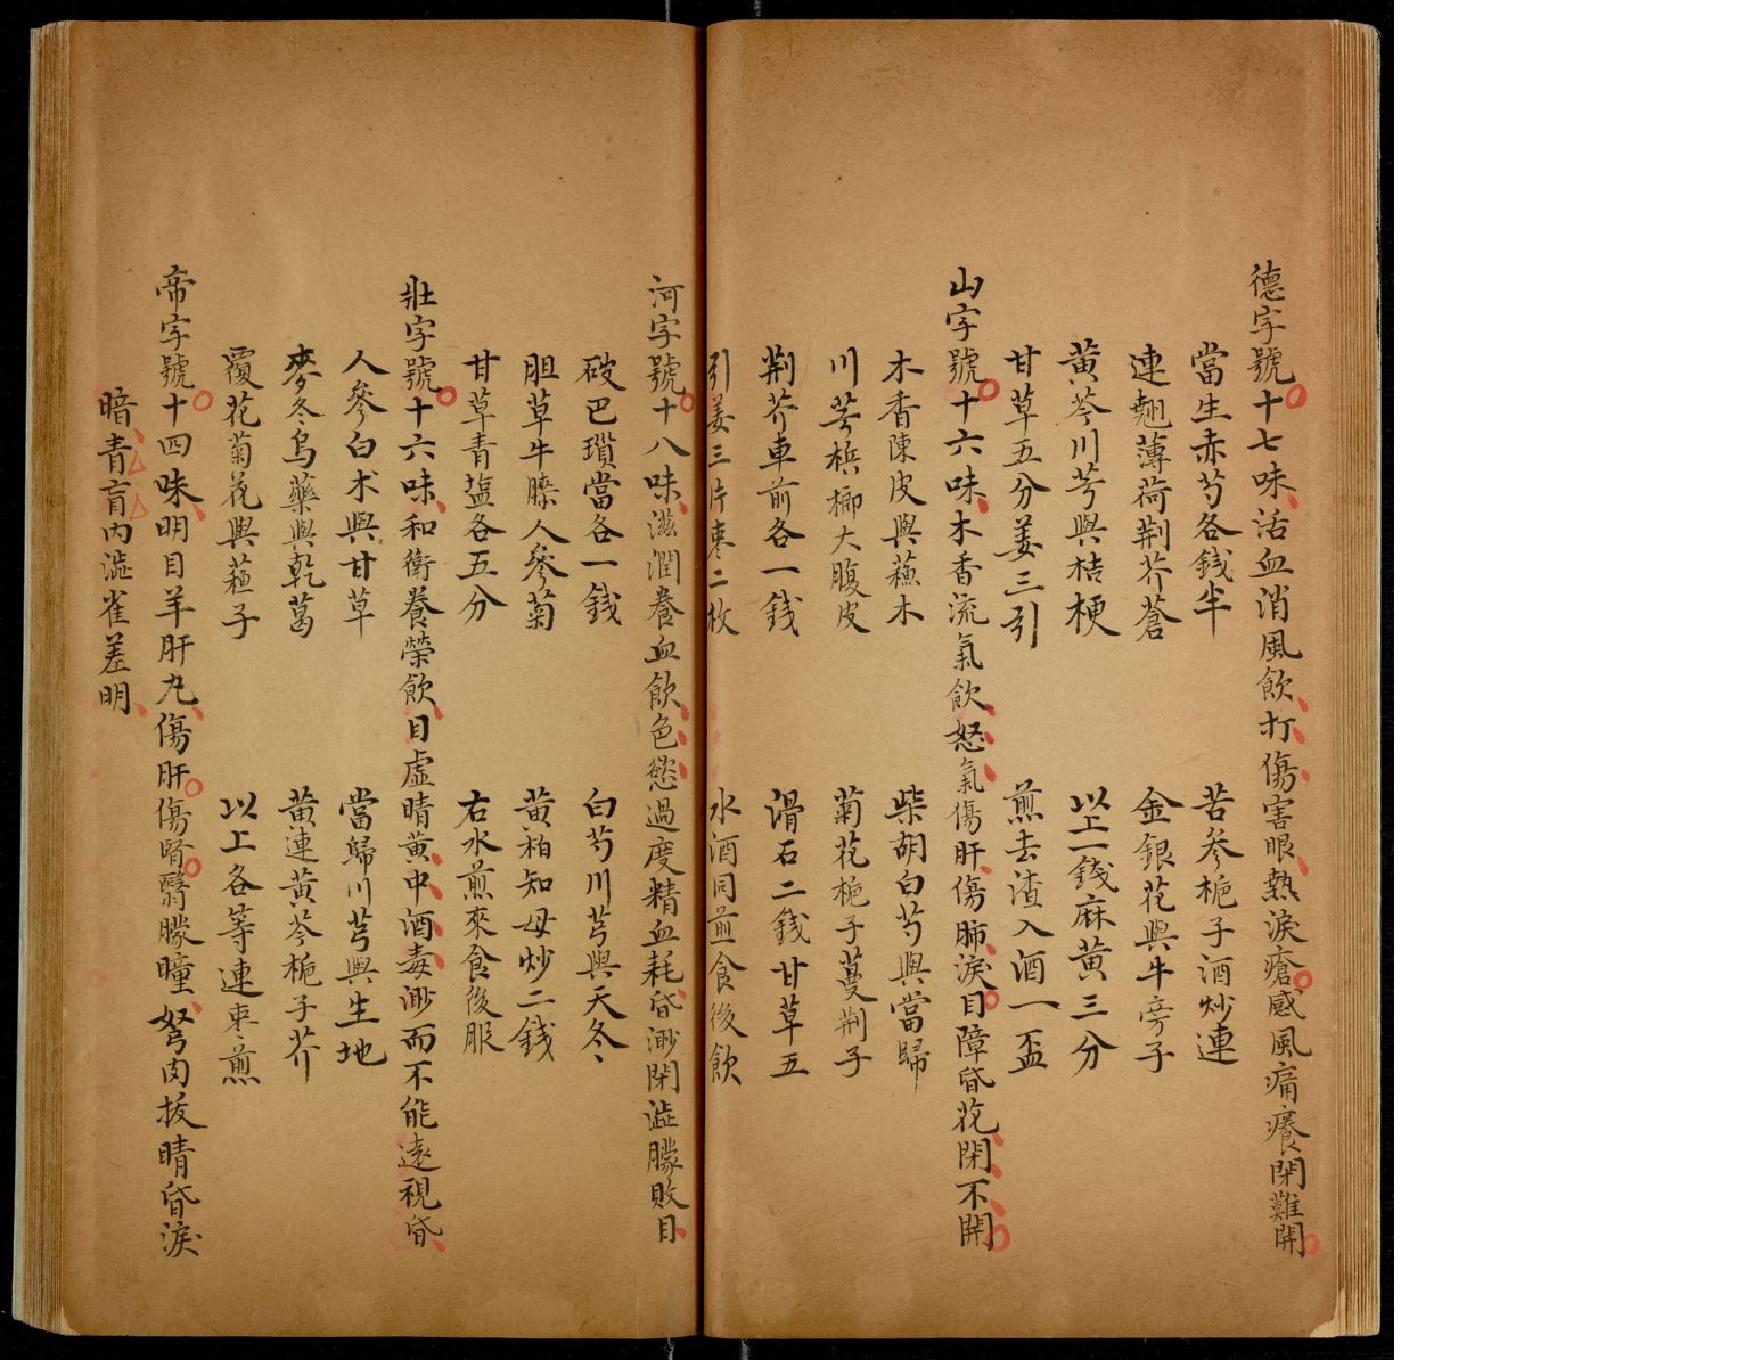 德字號十七味活血消風飲打傷害眼熱淚瘡感風痛癢閉難開
當生赤芍各錢半 苦参梔子酒炒連
連翹薄荷荆芥蒼 金銀花與牛旁子
黄芩川芎與桔梗 以上一錢麻黄三分
甘草五分姜三引 煎去渣入酒一盃
山字號十六味木香流氣飲怒氣傷肝傷肺淚目障昏花閉不開
木香陳皮與蘓木 柴胡白芍與當歸
川芎梹榔大腹皮 菊花梔子蔓荆子
荆芥車前各一錢 滑石二錢甘草五
引姜三片枣二枚 水酒同煎食後飲
河字號十八味滋潤養血飲色慾過度精血耗昏渺閉澁朦敗目
破巴瑣當各一錢 白芍川芎與天冬
胆草牛膝人參菊 黄柏知母炒二錢
甘草青塩各五分 右水煎來食後服
壯字號十六味和衛養榮飲目虚睛黄中酒毒渺而不能遠視昏
人參白术與甘草 當歸川芎與生地
麥冬烏藥與乾葛 黄連黄芩梔子芥
覆花菊花與蒩子 以上各等連枣煎
帝字號十四味明目羊肝丸傷肝傷腎翳朦瞳努肉拔睛昏淚
暗青盲内澁雀差明